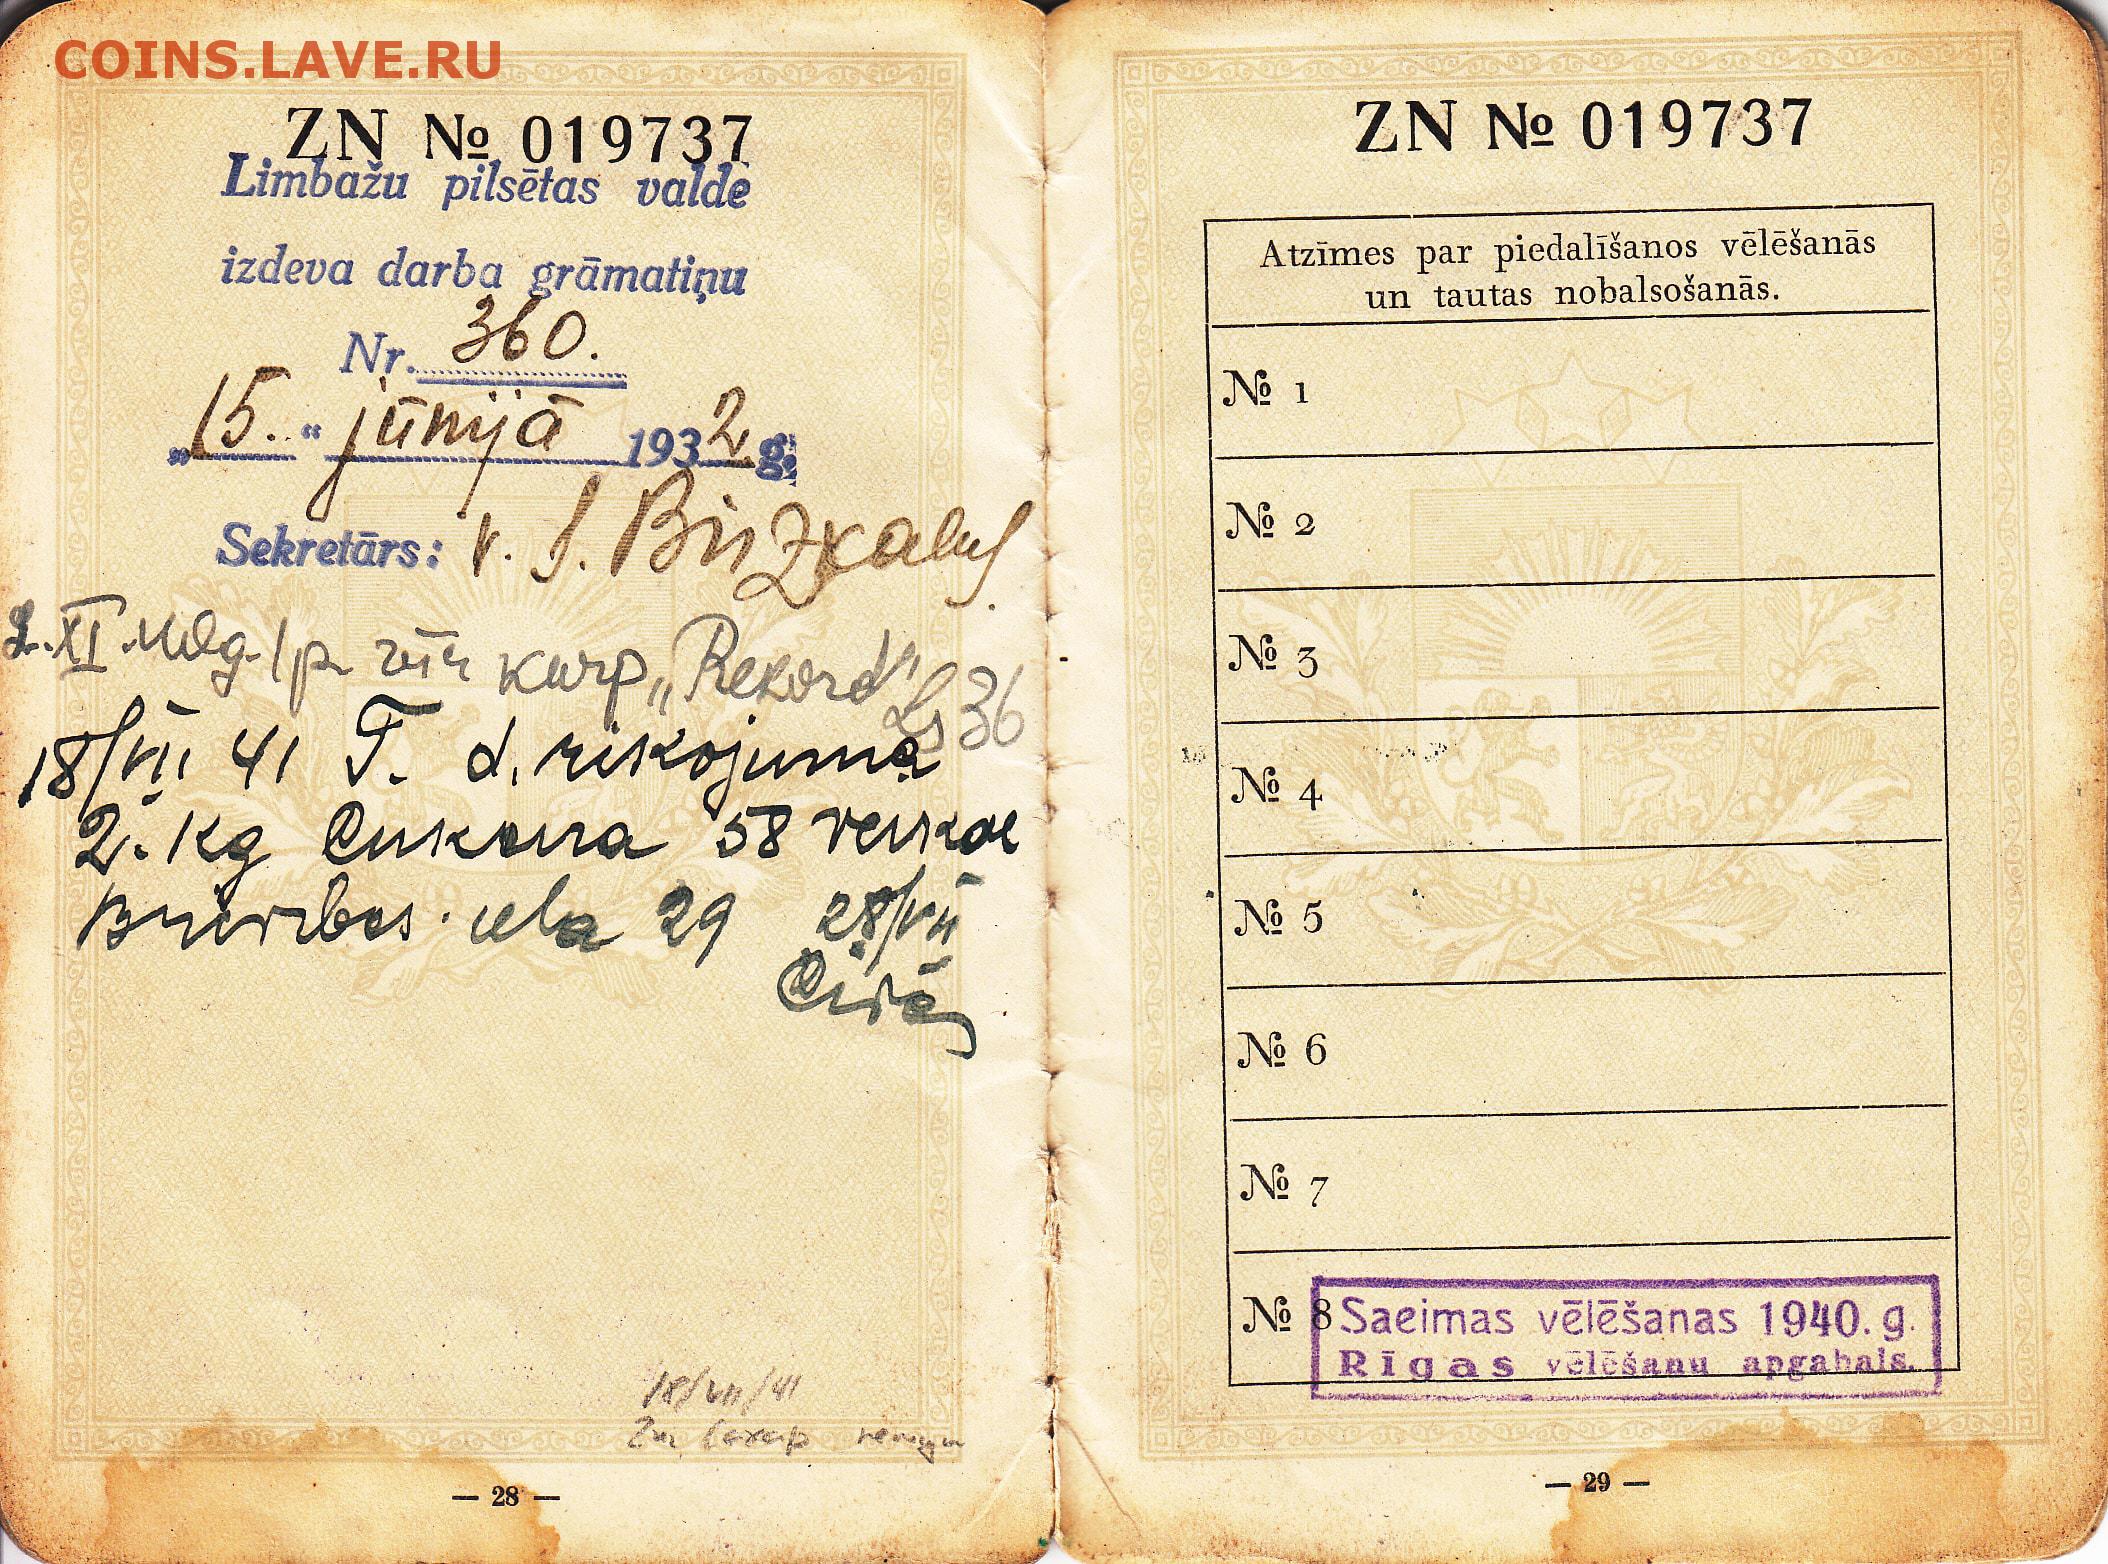 COINS.LAVE.RU
ZN № 019737
Limbažu pilsētas valde
izdeva darba grāmatiņu
Nr. 360.
„15.“ jūnijā 1932 g.
Sekretārs: v.
XI kurp „Rekord“ Ls 36
18/VII 41 T. d. rīkojuma
2. kg Cukura 58 veikale
Brīvības iela 29 28/VII
18/VII/41
— 28 —
ZN № 019737
Atzīmes par piedalīšanos vēlēšanās
un tautas nobalsošanās.
№ 1
№ 2
№ 3
№ 4
№ 5
№ 6
№ 7
№ 8 Saeimas vēlēšanas 1940. g.
Rīgas vēlēšanu apgabals.
— 29 —